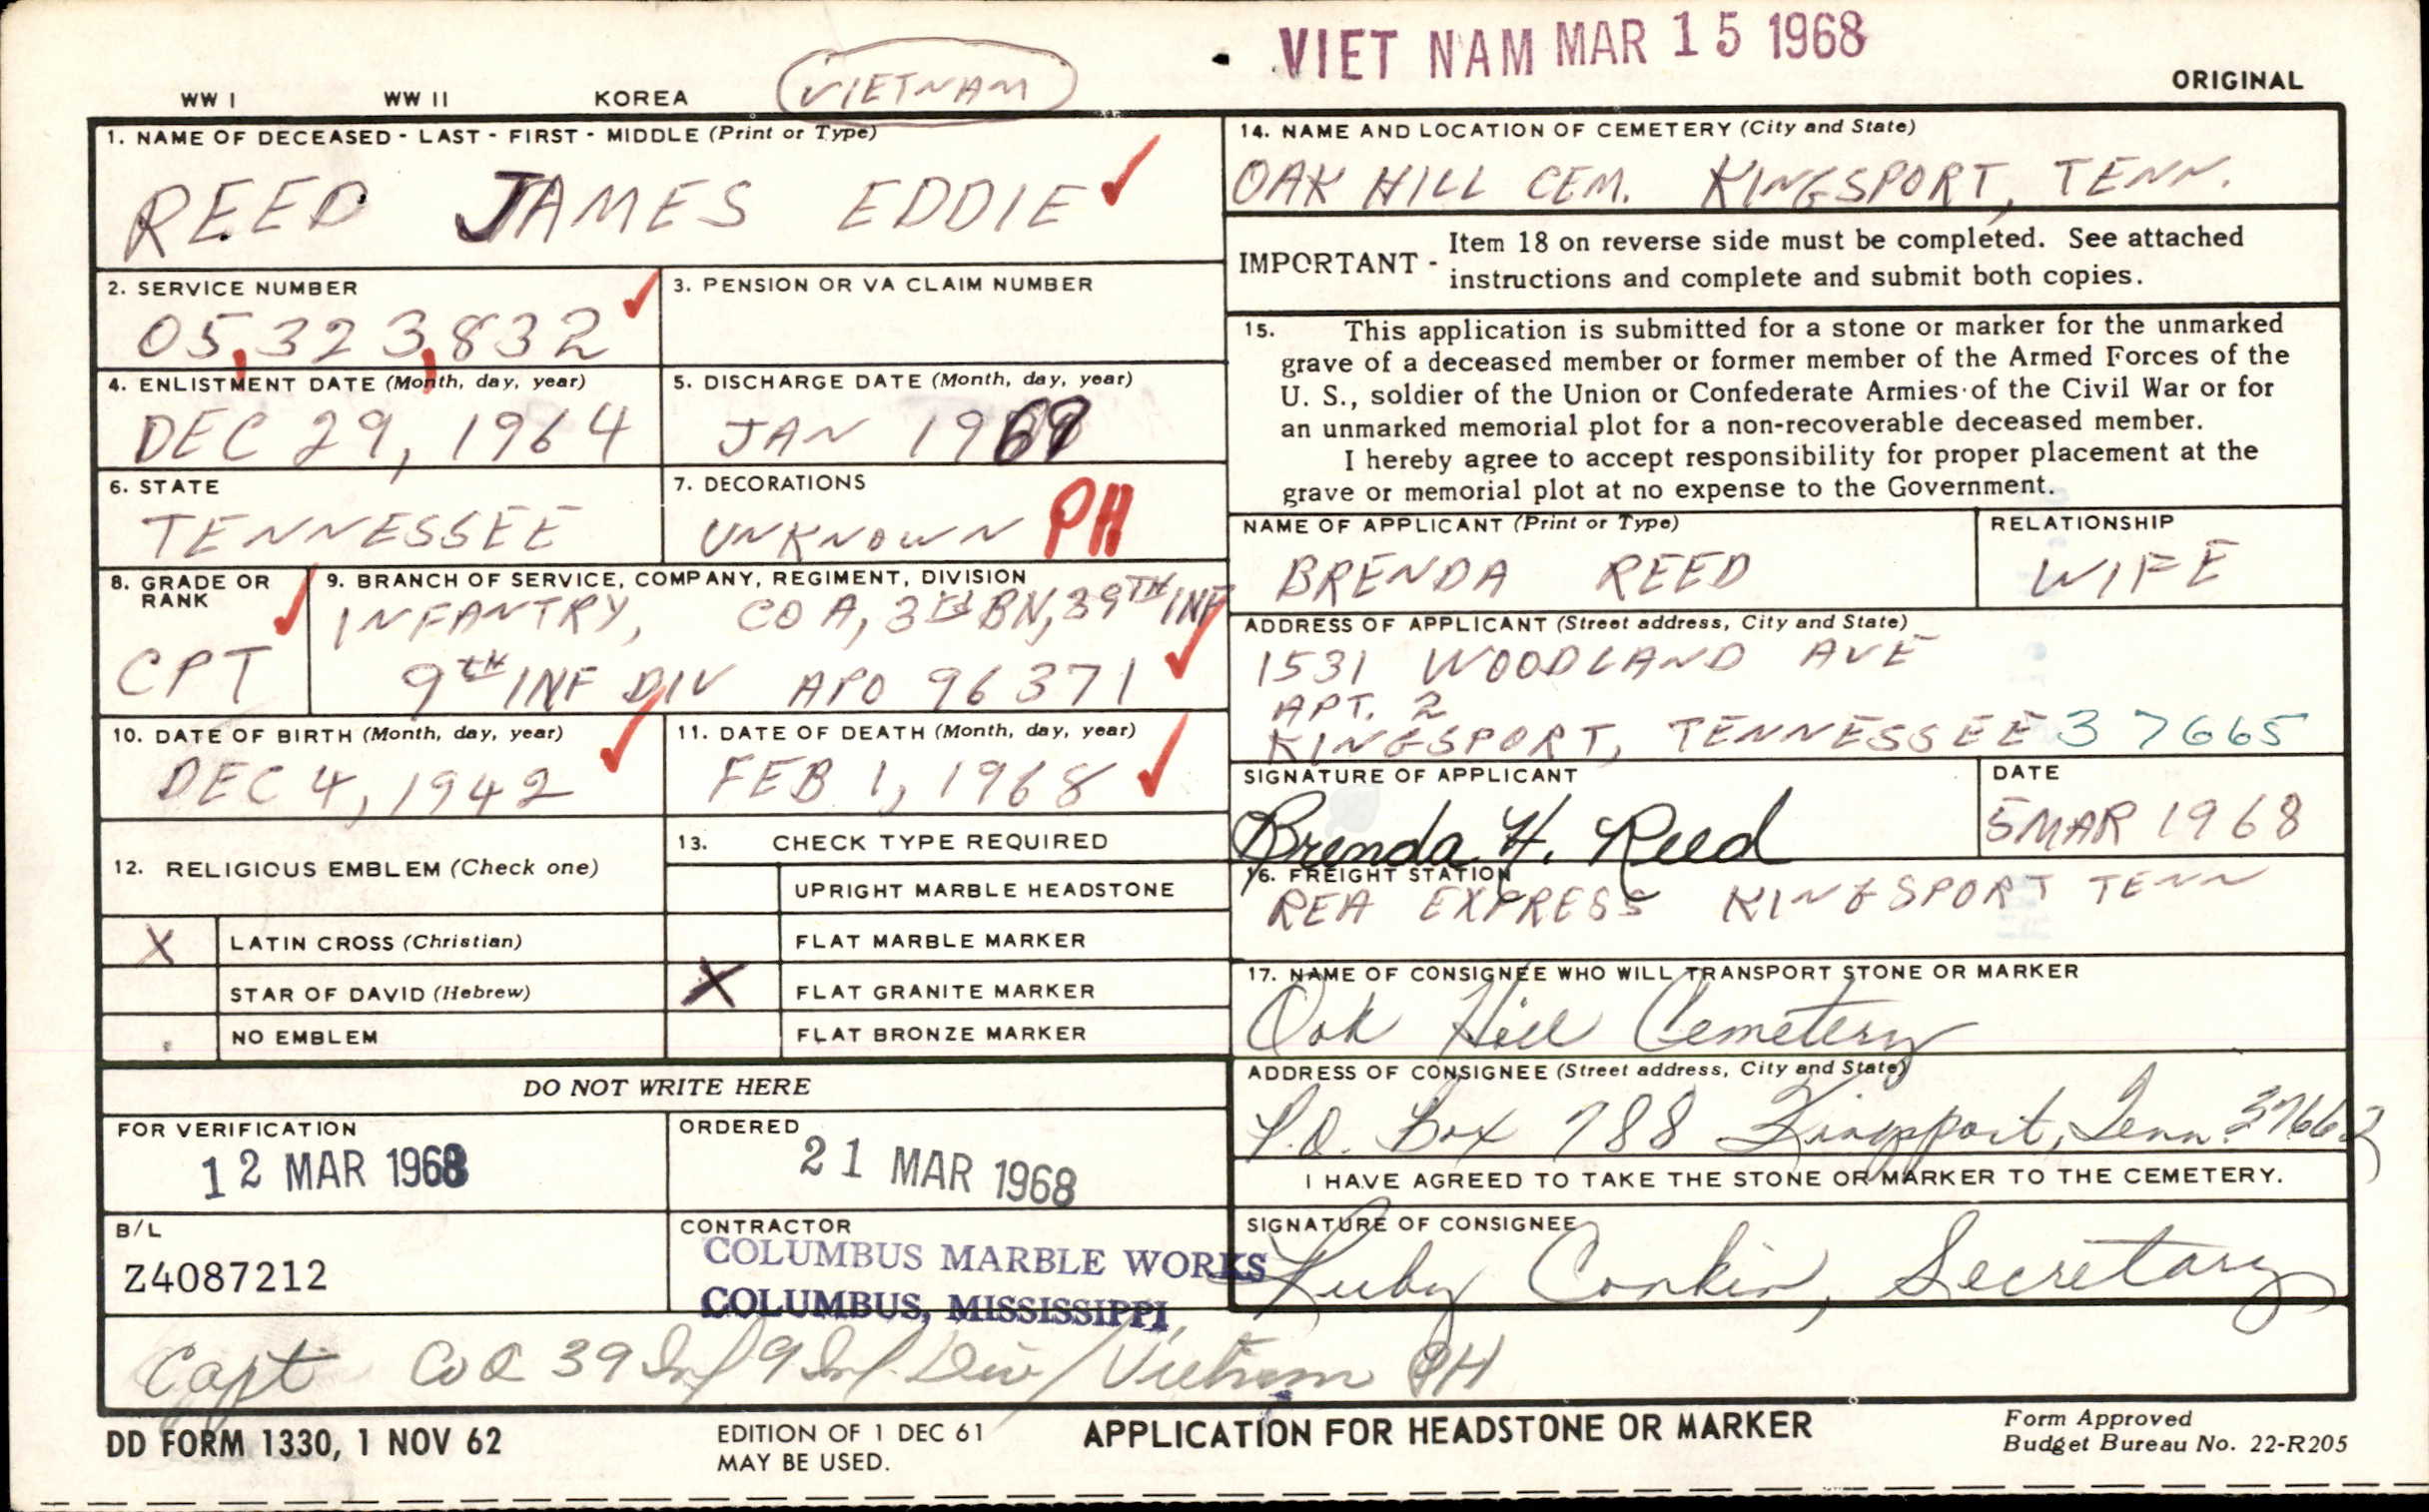 VIET NAM MAR 15 1968
WW I WW II KOREA VIETNAM
ORIGINAL
1. NAME OF DECEASED - LAST - FIRST - MIDDLE (Print or Type)
REED JAMES EDDIE
2. SERVICE NUMBER
05,323,832
3. PENSION OR VA CLAIM NUMBER
4. ENLISTMENT DATE (Month, day, year)
DEC 29, 1964
5. DISCHARGE DATE (Month, day, year)
JAN 19
6. STATE
TENNESSEE
7. DECORATIONS
UNKNOWN PH
8. GRADE OR
RANK
CPT
9. BRANCH OF SERVICE, COMPANY, REGIMENT, DIVISION
INFANTRY, CO A, 3rd BN, 39TH INF
9th INF DIV APO 96371
10. DATE OF BIRTH (Month, day, year)
DEC 4, 1942
11. DATE OF DEATH (Month, day, year)
FEB 1, 1968
12. RELIGIOUS EMBLEM (Check one)
X LATIN CROSS (Christian)
STAR OF DAVID (Hebrew)
NO EMBLEM
13. CHECK TYPE REQUIRED
UPRIGHT MARBLE HEADSTONE
FLAT MARBLE MARKER
X FLAT GRANITE MARKER
FLAT BRONZE MARKER
DO NOT WRITE HERE
FOR VERIFICATION
12 MAR 1968
ORDERED
21 MAR 1968
B/L
Z4087212
CONTRACTOR
COLUMBUS MARBLE WORKS
COLUMBUS, MISSISSIPPI
14. NAME AND LOCATION OF CEMETERY (City and State)
OAK HILL CEM. KINGSPORT, TENN.
IMPORTANT - Item 18 on reverse side must be completed. See attached
instructions and complete and submit both copies.
15. This application is submitted for a stone or marker for the unmarked
grave of a deceased member or former member of the Armed Forces of the
U. S., soldier of the Union or Confederate Armies of the Civil War or for
an unmarked memorial plot for a non-recoverable deceased member.
I hereby agree to accept responsibility for proper placement at the
grave or memorial plot at no expense to the Government.
NAME OF APPLICANT (Print or Type)
BRENDA REED
RELATIONSHIP
WIFE
ADDRESS OF APPLICANT (Street address, City and State)
1531 WOODLAND AVE
APT. 2
KINGSPORT, TENNESSEE 37665
SIGNATURE OF APPLICANT
Brenda H. Reed
DATE
5 MAR 1968
16. FREIGHT STATION
REA EXPRESS KINGSPORT TENN
17. NAME OF CONSIGNEE WHO WILL TRANSPORT STONE OR MARKER
Oak Hill Cemetery
ADDRESS OF CONSIGNEE (Street address, City and State)
P.O. Box 788 Kingsport, Tenn. 37662
I HAVE AGREED TO TAKE THE STONE OR MARKER TO THE CEMETERY.
SIGNATURE OF CONSIGNEE
Ruby Conkin, Secretary
Capt Co A 39 Inf 9 Inf. Div / Vietnam PH
DD FORM 1330, 1 NOV 62
EDITION OF 1 DEC 61
MAY BE USED.
APPLICATION FOR HEADSTONE OR MARKER
Form Approved
Budget Bureau No. 22-R205